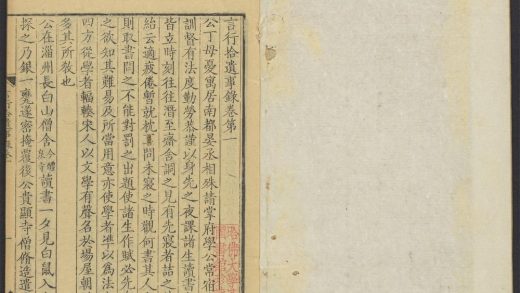 言行拾遺事錄卷第一
公丁母憂寓居南都晏丞相殊請掌府學公常宿
訓督有法度勤勞恭謹以身先之夜課諸生讀書
皆立時刻往往潛至齋舍詗之見有先寢者詰之
紿云適疲倦暫就枕問未寢之時觀何書其人
則取書問之不能對罰之出題使諸生作賦必先
之欲知其難易及所當用意亦使學者準以為法
四方從學者輻輳宋人以文學有聲名於場屋朝
多其所教也
公在淄州長白山僧舍今醴泉寺讀書一夕見白鼠入
探之乃銀一甕遂密掩覆後公貴顯寺僧脩造遣
哈佛大學